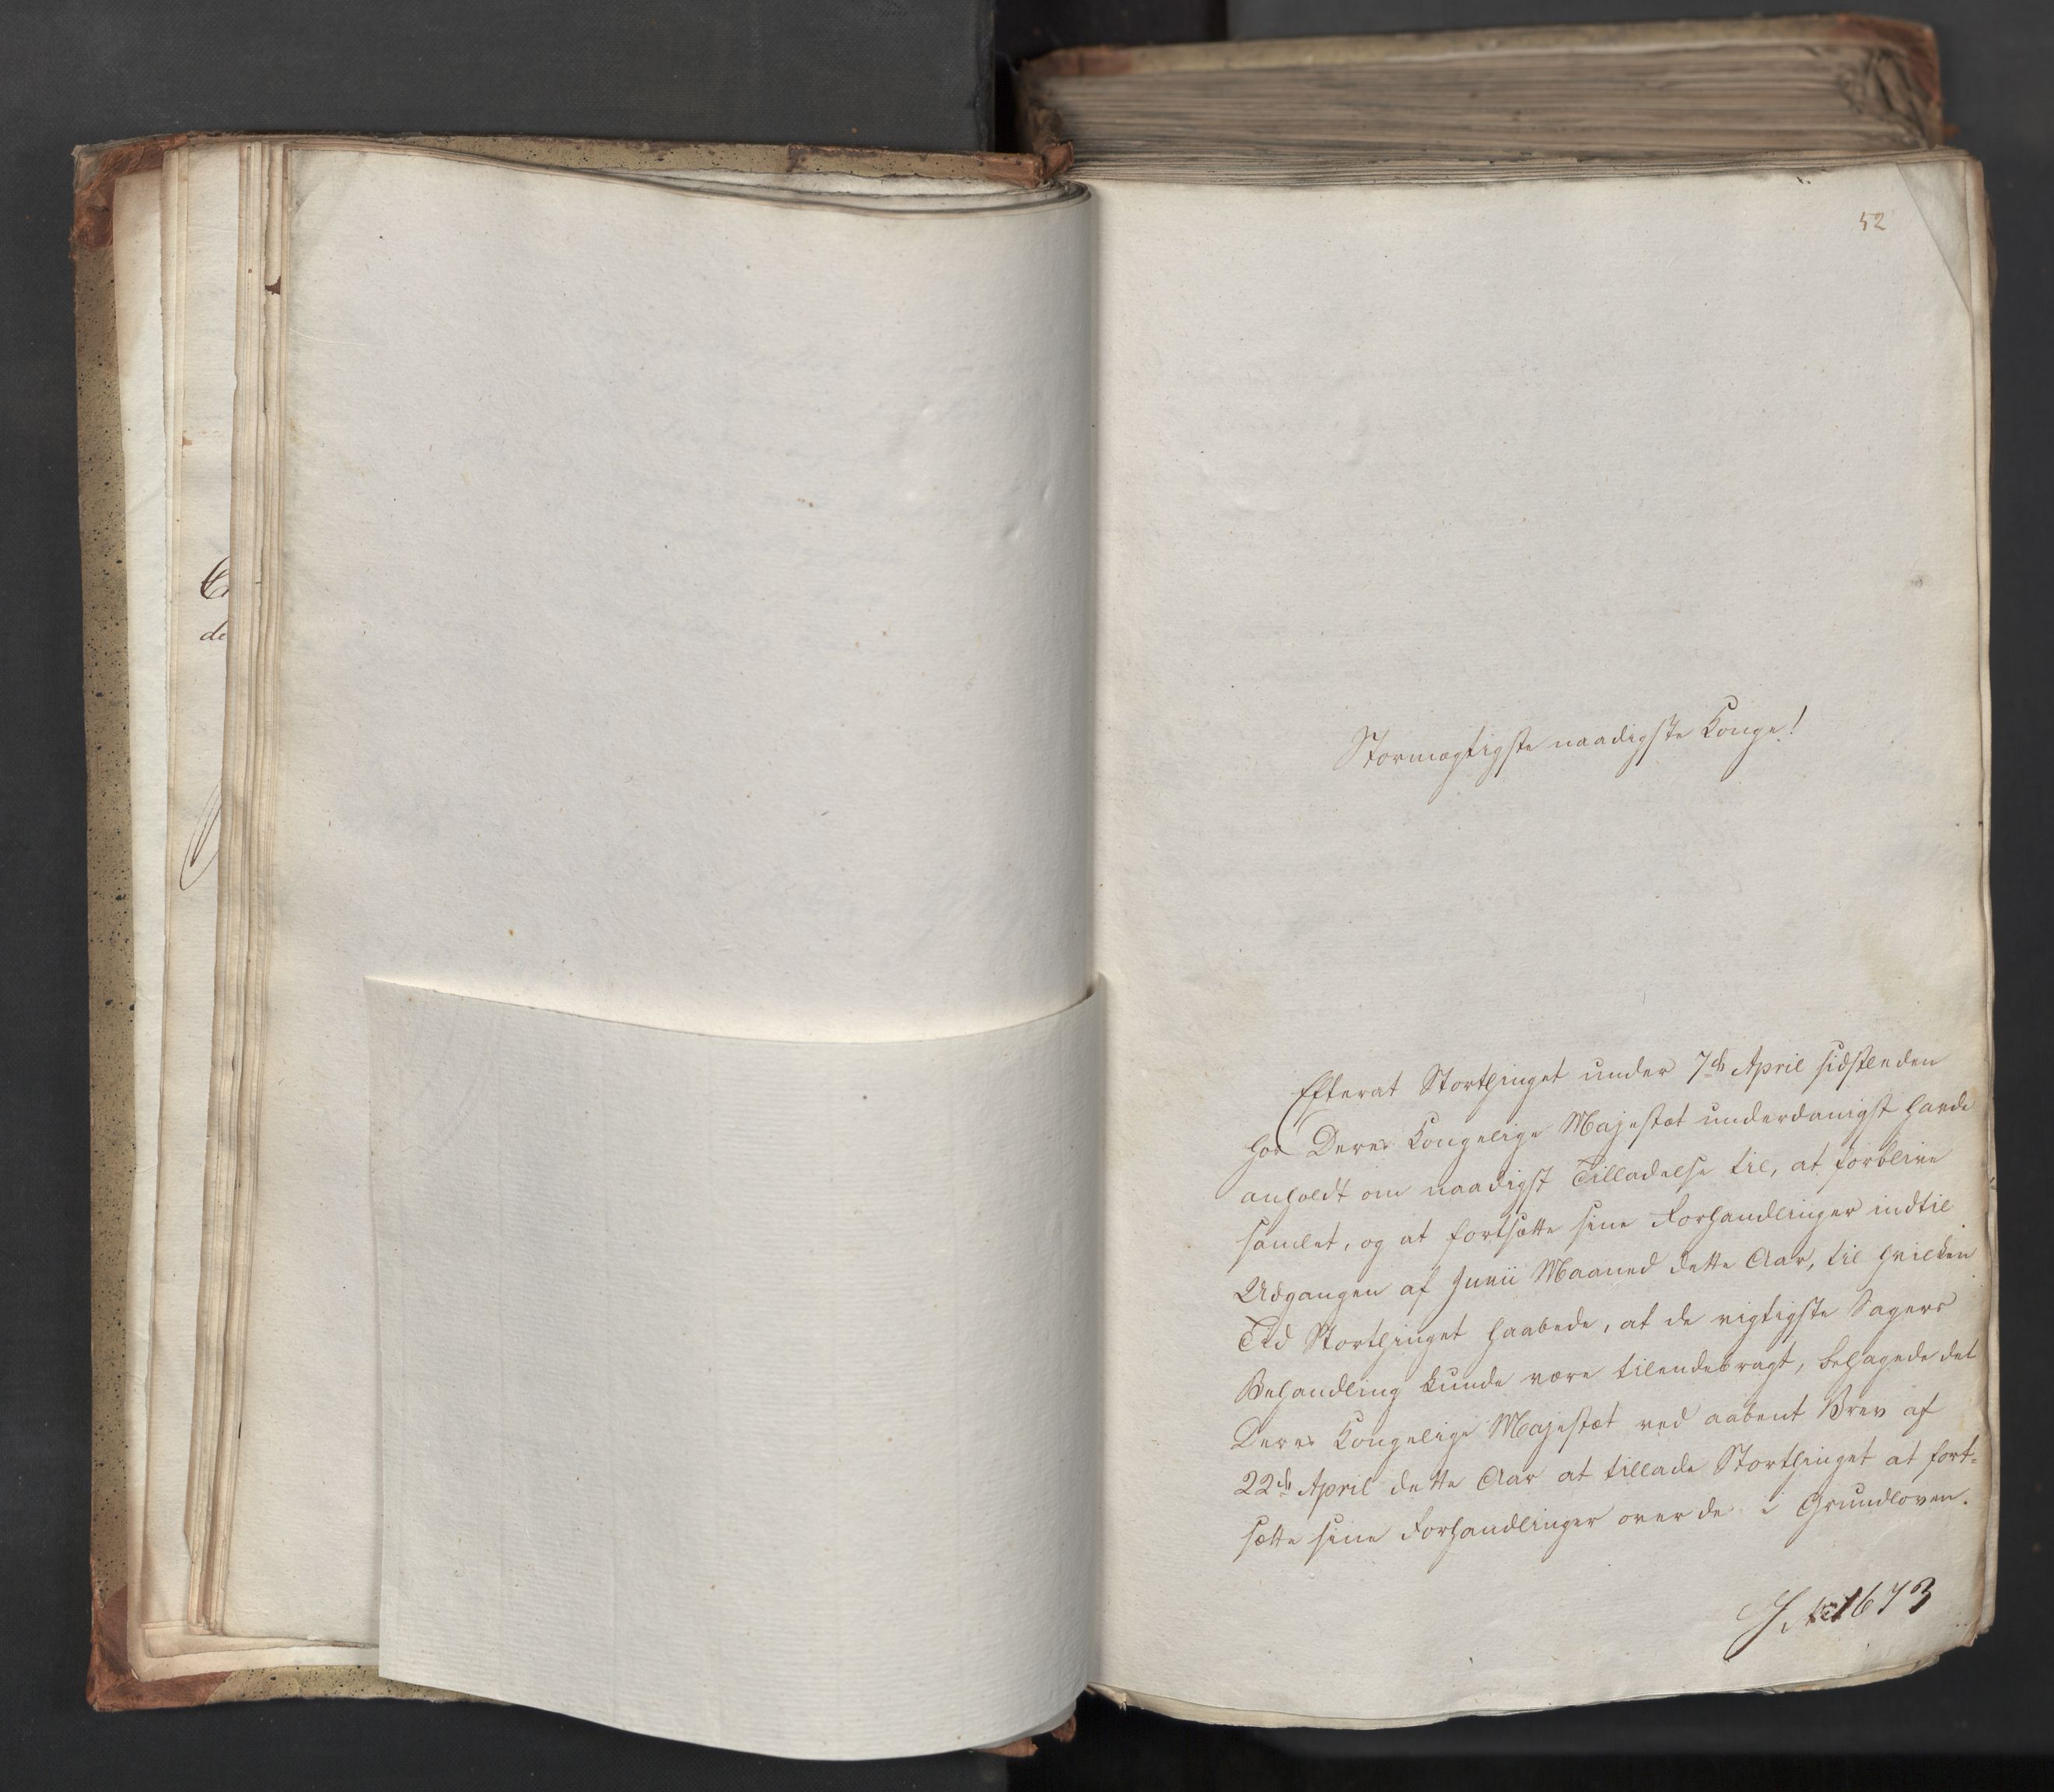 52
Stormægtigste naadigste Konge!
Efterat Storthinget under 7de April sidstleden
hos Deres Kongelige Majestæt underdanigst havde
anholdt om naadigst Tilladelse til, at forblive
samlet, og at fortsætte sine Forhandlinger indtil
Udgangen af Junii Maaned dette Aar, til hvilken
Tid Storthinget haabede, at de vigtigste Sagers
Behandling kunde være tilendebragt, behagede det
Deres Kongelige Majestæt ved aabent Brev af
22de April dette Aar at tillade Storthinget at fort-
sætte sine Forhandlinger over de i Grundloven.
1673